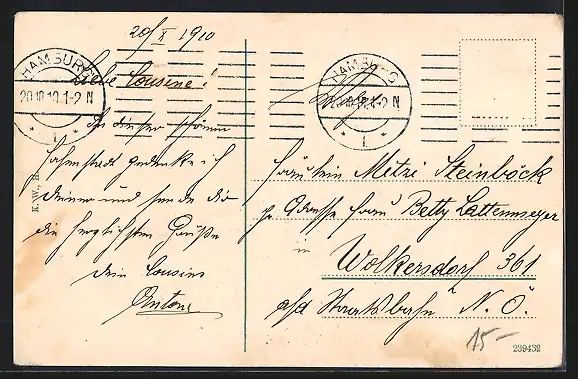 20/X 1910
HAMBURG
20.10.10.1-2 N
1
Liebe Cousine!
In dieser schönen
Hafenstadt gedenke ich
Deiner und sende dir
die herzlichsten Grüße
dein Cousin
Anton
K.W., H.
HAMBURG
20.10.10.1-2 N
1
Fräulein Mitzi Steinböck
pr Adresse Frau Betty Lattenmeyer
in
Wolkersdorf 361
a/d Staatsbahn N.Ö.
15-
239432